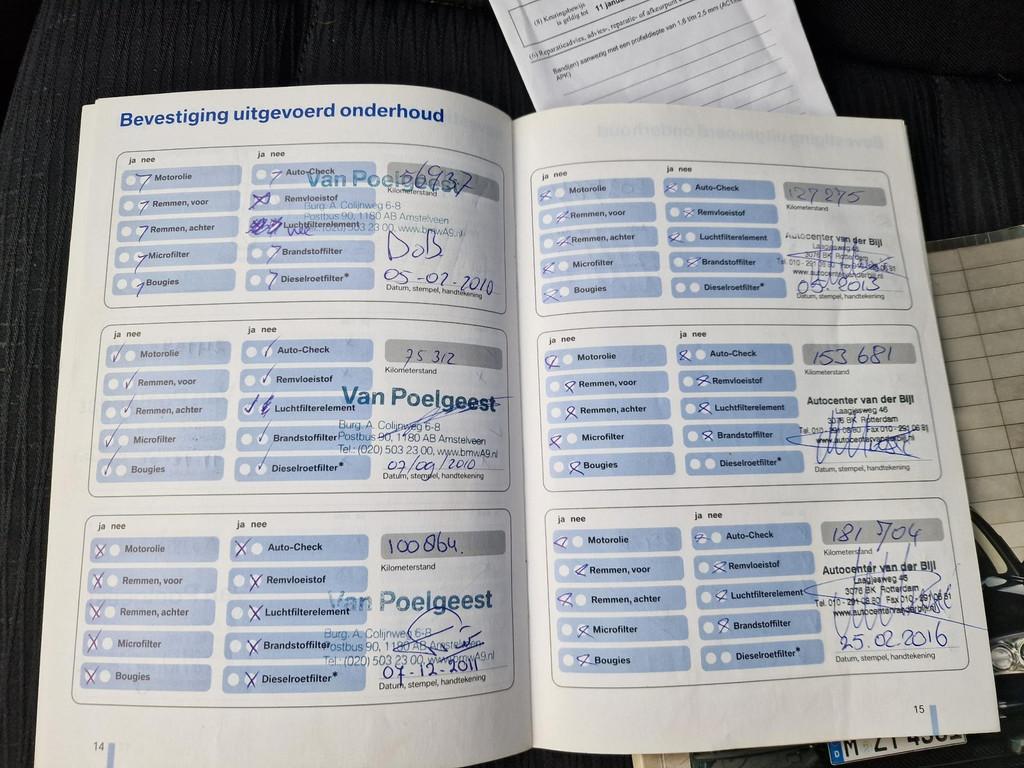 (8) Keuringsbewijs
is geldig tot 11 janu
(6) Reparatieadvies, advies-, reparatie- of afkeurpunt
Band(en) aanwezig met een profieldiepte van 1,6 t/m 2,5 mm (AC1
APK)
Bevestiging uitgevoerd onderhoud
ja nee
ja nee
Motorolie
Auto-Check
Remmen, voor
Remvloeistof
Remmen, achter
Luchtfilterelement
Microfilter
Brandstoffilter
Bougies
Dieselroetfilter*
56937
Kilometerstand
Van Poelgeest
Burg. A. Colijnweg 6-8
Postbus 90, 1180 AB Amstelveen
Tel.: (020) 503 23 00, www.bmwA9.nl
DoB
05-02-2010
Datum, stempel, handtekening
ja nee
ja nee
Motorolie
Auto-Check
Remmen, voor
Remvloeistof
Remmen, achter
Luchtfilterelement
Microfilter
Brandstoffilter
Bougies
Dieselroetfilter*
75 312
Kilometerstand
Van Poelgeest
Burg. A. Colijnweg 6-8
Postbus 90, 1180 AB Amstelveen
Tel.: (020) 503 23 00, www.bmwA9.nl
07/09/2010
Datum, stempel, handtekening
ja nee
ja nee
Motorolie
Auto-Check
Remmen, voor
Remvloeistof
Remmen, achter
Luchtfilterelement
Microfilter
Brandstoffilter
Bougies
Dieselroetfilter*
100864.
Kilometerstand
Van Poelgeest
Burg. A. Colijnweg 6-8
Postbus 90, 1180 AB Amstelveen
Tel.: (020) 503 23 00, www.bmwA9.nl
07-12-2011
Datum, stempel, handtekening
14
ja nee
ja nee
Motorolie
Auto-Check
Remmen, voor
Remvloeistof
Remmen, achter
Luchtfilterelement
Microfilter
Brandstoffilter
Bougies
Dieselroetfilter*
127275
Kilometerstand
Autocenter van der Bijl
Laagjesweg 45
3076 BK Rotterdam
Tel. 010 - 291 06 80 Fax 010 - 291 06 81
www.autocentervanderbijl.nl
05 2013
Datum, stempel, handtekening
ja nee
ja nee
Motorolie
Auto-Check
Remmen, voor
Remvloeistof
Remmen, achter
Luchtfilterelement
Microfilter
Brandstoffilter
Bougies
Dieselroetfilter*
153 681
Kilometerstand
Autocenter van der Bijl
Laagjesweg 45
3076 BK Rotterdam
Tel. 010 - 291 06 80 Fax 010 - 291 06 81
www.autocentervanderbijl.nl
Datum, stempel, handtekening
ja nee
ja nee
Motorolie
Auto-Check
Remmen, voor
Remvloeistof
Remmen, achter
Luchtfilterelement
Microfilter
Brandstoffilter
Bougies
Dieselroetfilter*
181 704
Kilometerstand
Autocenter van der Bijl
Laagjesweg 45
3076 BK Rotterdam
Tel. 010 - 291 06 80 Fax 010 - 291 06 81
www.autocentervanderbijl.nl
25.02.2016
Datum, stempel, handtekening
15